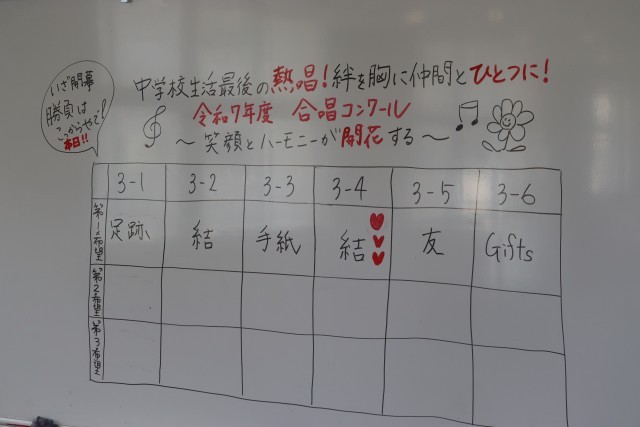 いざ開幕
勝負は
ここからやで!
本日!!
中学校生活最後の熱唱!絆を胸に仲間とひとつに!
令和7年度 合唱コンクール
～笑顔とハーモニーが開花する～
3-1 3-2 3-3 3-4 3-5 3-6
第1希望 足跡 結 手紙 結 友 Gifts
第2希望
第3希望